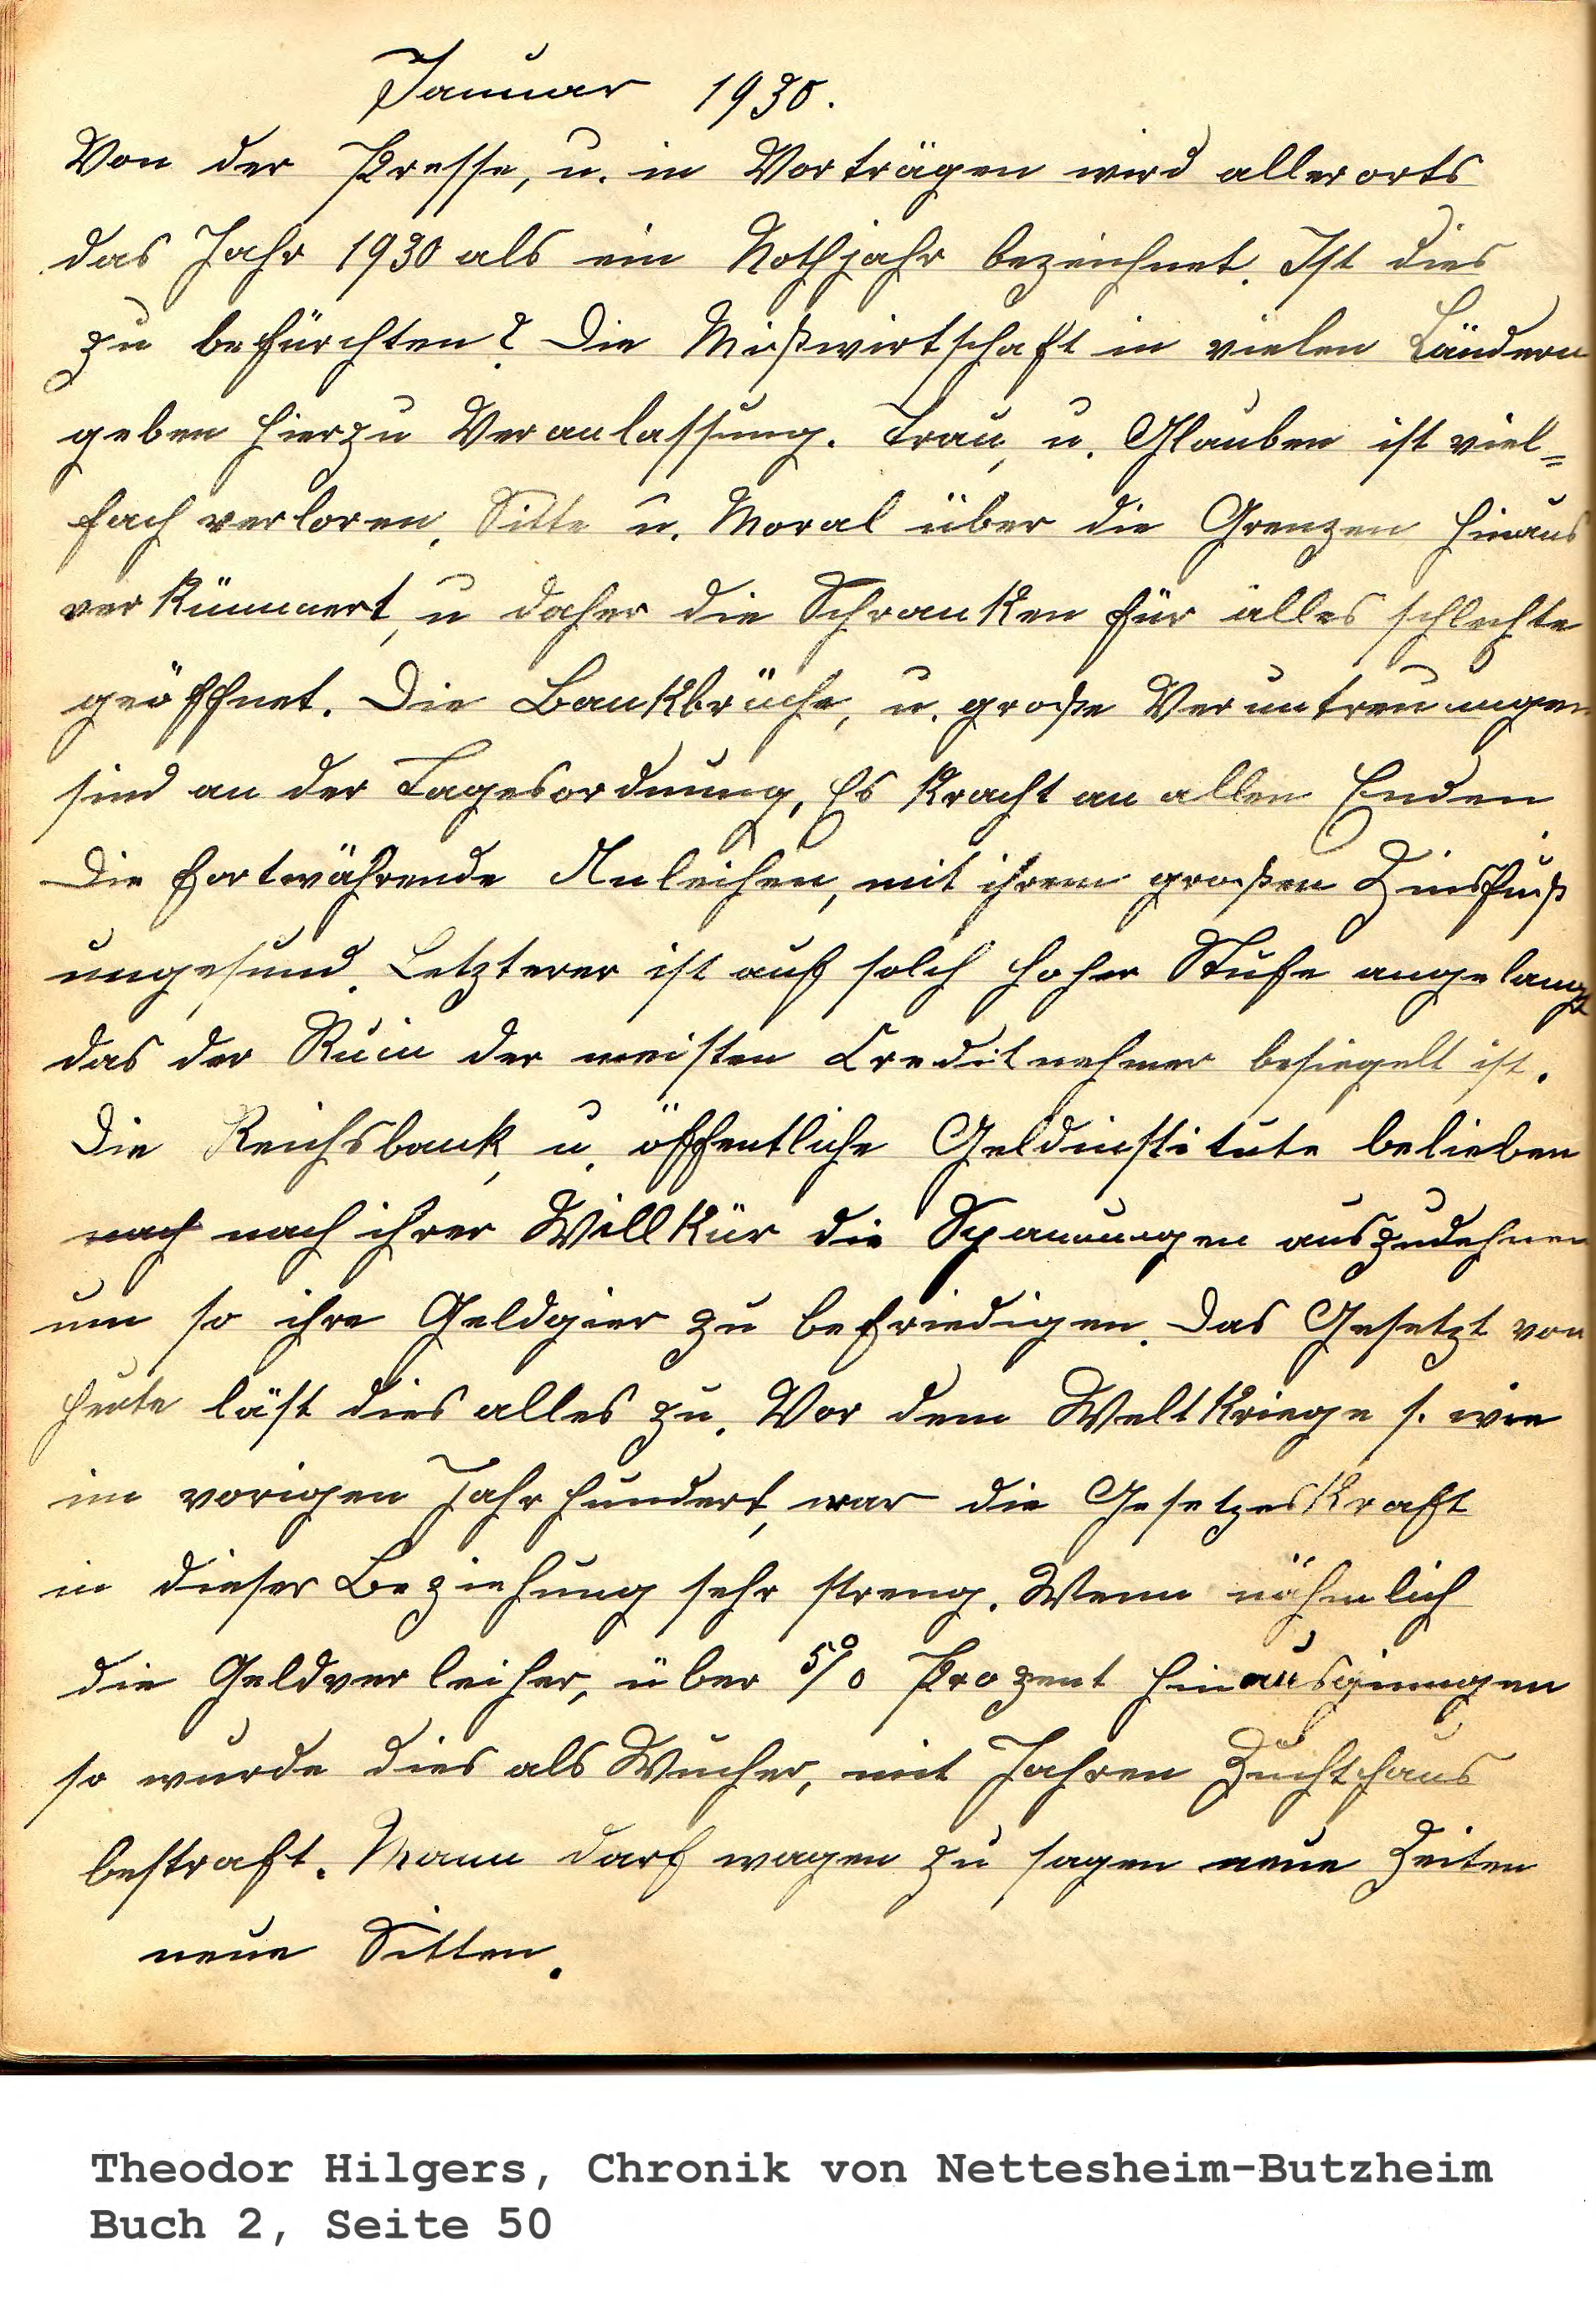 Januar 1930.
Von der Presse, u. in Vorträgen wird allerorts
das Jahr 1930 als ein Nothjahr bezeichnet. Ist dies
zu befürchten? Die Mißwirtschaft in vielen Ländern
geben hierzu Veranlassung. Trau, u. Glauben ist viel=
fach verloren. Sitte u. Moral über die Grenzen hinaus
verkümmert, u daher die Schranken für alles schlechte
geöffnet. Die Bankbrüche, u. große Veruntreuungen
sind an der Tagesordnung. Es kracht an allen Enden.
Die fortwährende Anleihen, mit ihrem großen Zinsfuß
ungesund. Letzterer ist auf solch hoher Stufe angelangt
das der Ruin der meisten Creditnehmer besiegelt ist.
Die Reichsbank, u. öffentliche Geldinstitute belieben
nach nach ihrer Willkür die Spannungen auszudehnen
um so ihre Geldgier zu befriedigen. Das Gesetzt von
heute läst dies alles zu. Vor dem Weltkriege s. wie
im vorigen Jahrhundert, war die Gesetzeskraft
in dieser Beziehung sehr streng. Wenn nähmlich
die Geldverleiher, über 5% Prozent hinausgingen
so wurde dies als Wucher, mit Jahren Zuchthaus
bestraft. Mann darf wagen zu sagen neue Zeiten
neue Sitten.
Theodor Hilgers, Chronik von Nettesheim-Butzheim
Buch 2, Seite 50